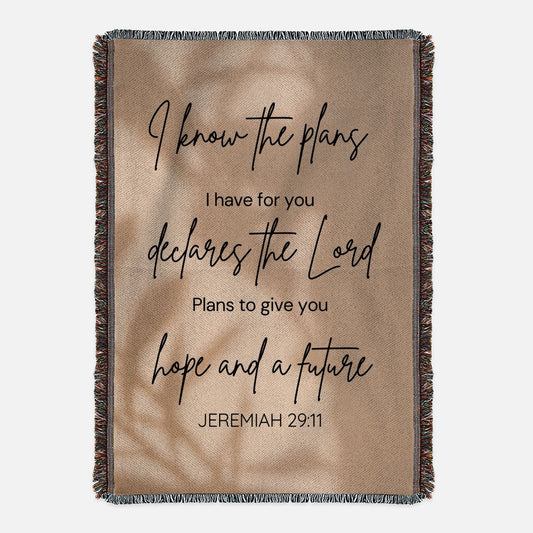 I know the plans
I have for you
declares the Lord
Plans to give you
hope and a future
JEREMIAH 29:11